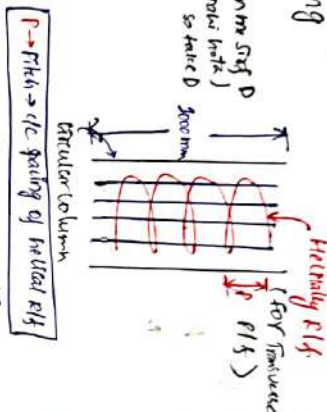 ng
n one side D
so take D
3000mm
circular column
Helically R/f.
(For Transverse
R/f)
P
P → Pitch → c/c spacing of helical R/f